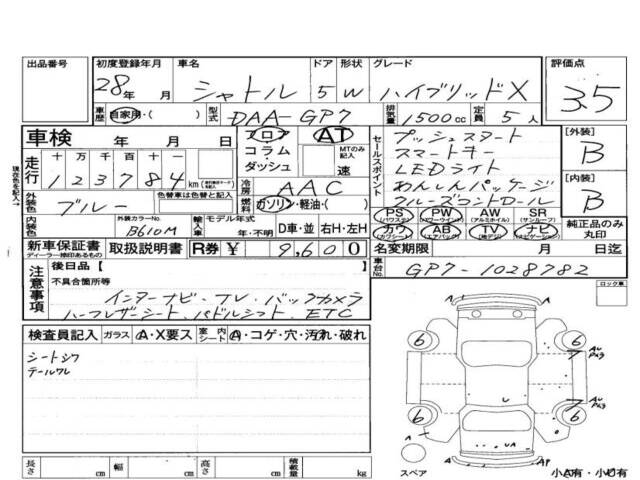 出品番号 初度登録年月 車名 ドア 形状 グレード 評価点
28年 月 シャトル 5 W ハイブリッドX 3.5
車歴 自家用・( ) 型式 DAA-GP7 排気量 1500cc 定員 5人
車検 年 月 日 フロア コラム ダッシュ AT MTのみ記入 速
セールスポイント プッシュスタート
スマートキー
LEDライト
あんしんパッケージ
クルーズコントロール
[外装] B
[内装] B
走行 十 万 千 百 十 一
123784 km
現在色を記入
外装色 ブルー 色替車は色替と記入
冷房 AAC
燃料 ガソリン・軽油・( )
内装色 外装カラーNo. B610M 輸入車 モデル年式 年・不明 D車・並 右H・左H
PS (パワステ) PW (パワーウィンド) AW (アルミホイル) SR (サンルーフ)
カワ (カワシート) AB (エアバック) TV (テレビ) ナビ (ナビゲーション)
純正品のみ丸印
新車保証書 ディーラー捺印あるもの 取扱説明書 R券 ¥ 9,600
名変期限 月 日迄
車台No. GP7-1028782
注意事項 後日品【 】
不具合箇所等
インターナビ・フレ・バックカメラ
ハーフレザーシート パドルシフト ETC
ロック車
検査員記入 ガラス A・X要ス 室内シート A・コゲ・穴・汚れ・破れ
シートシワ
テールワレ
6 6 6 6
スペア
小A有・小U有
長さ cm 幅 cm 高さ cm 積載量 kg